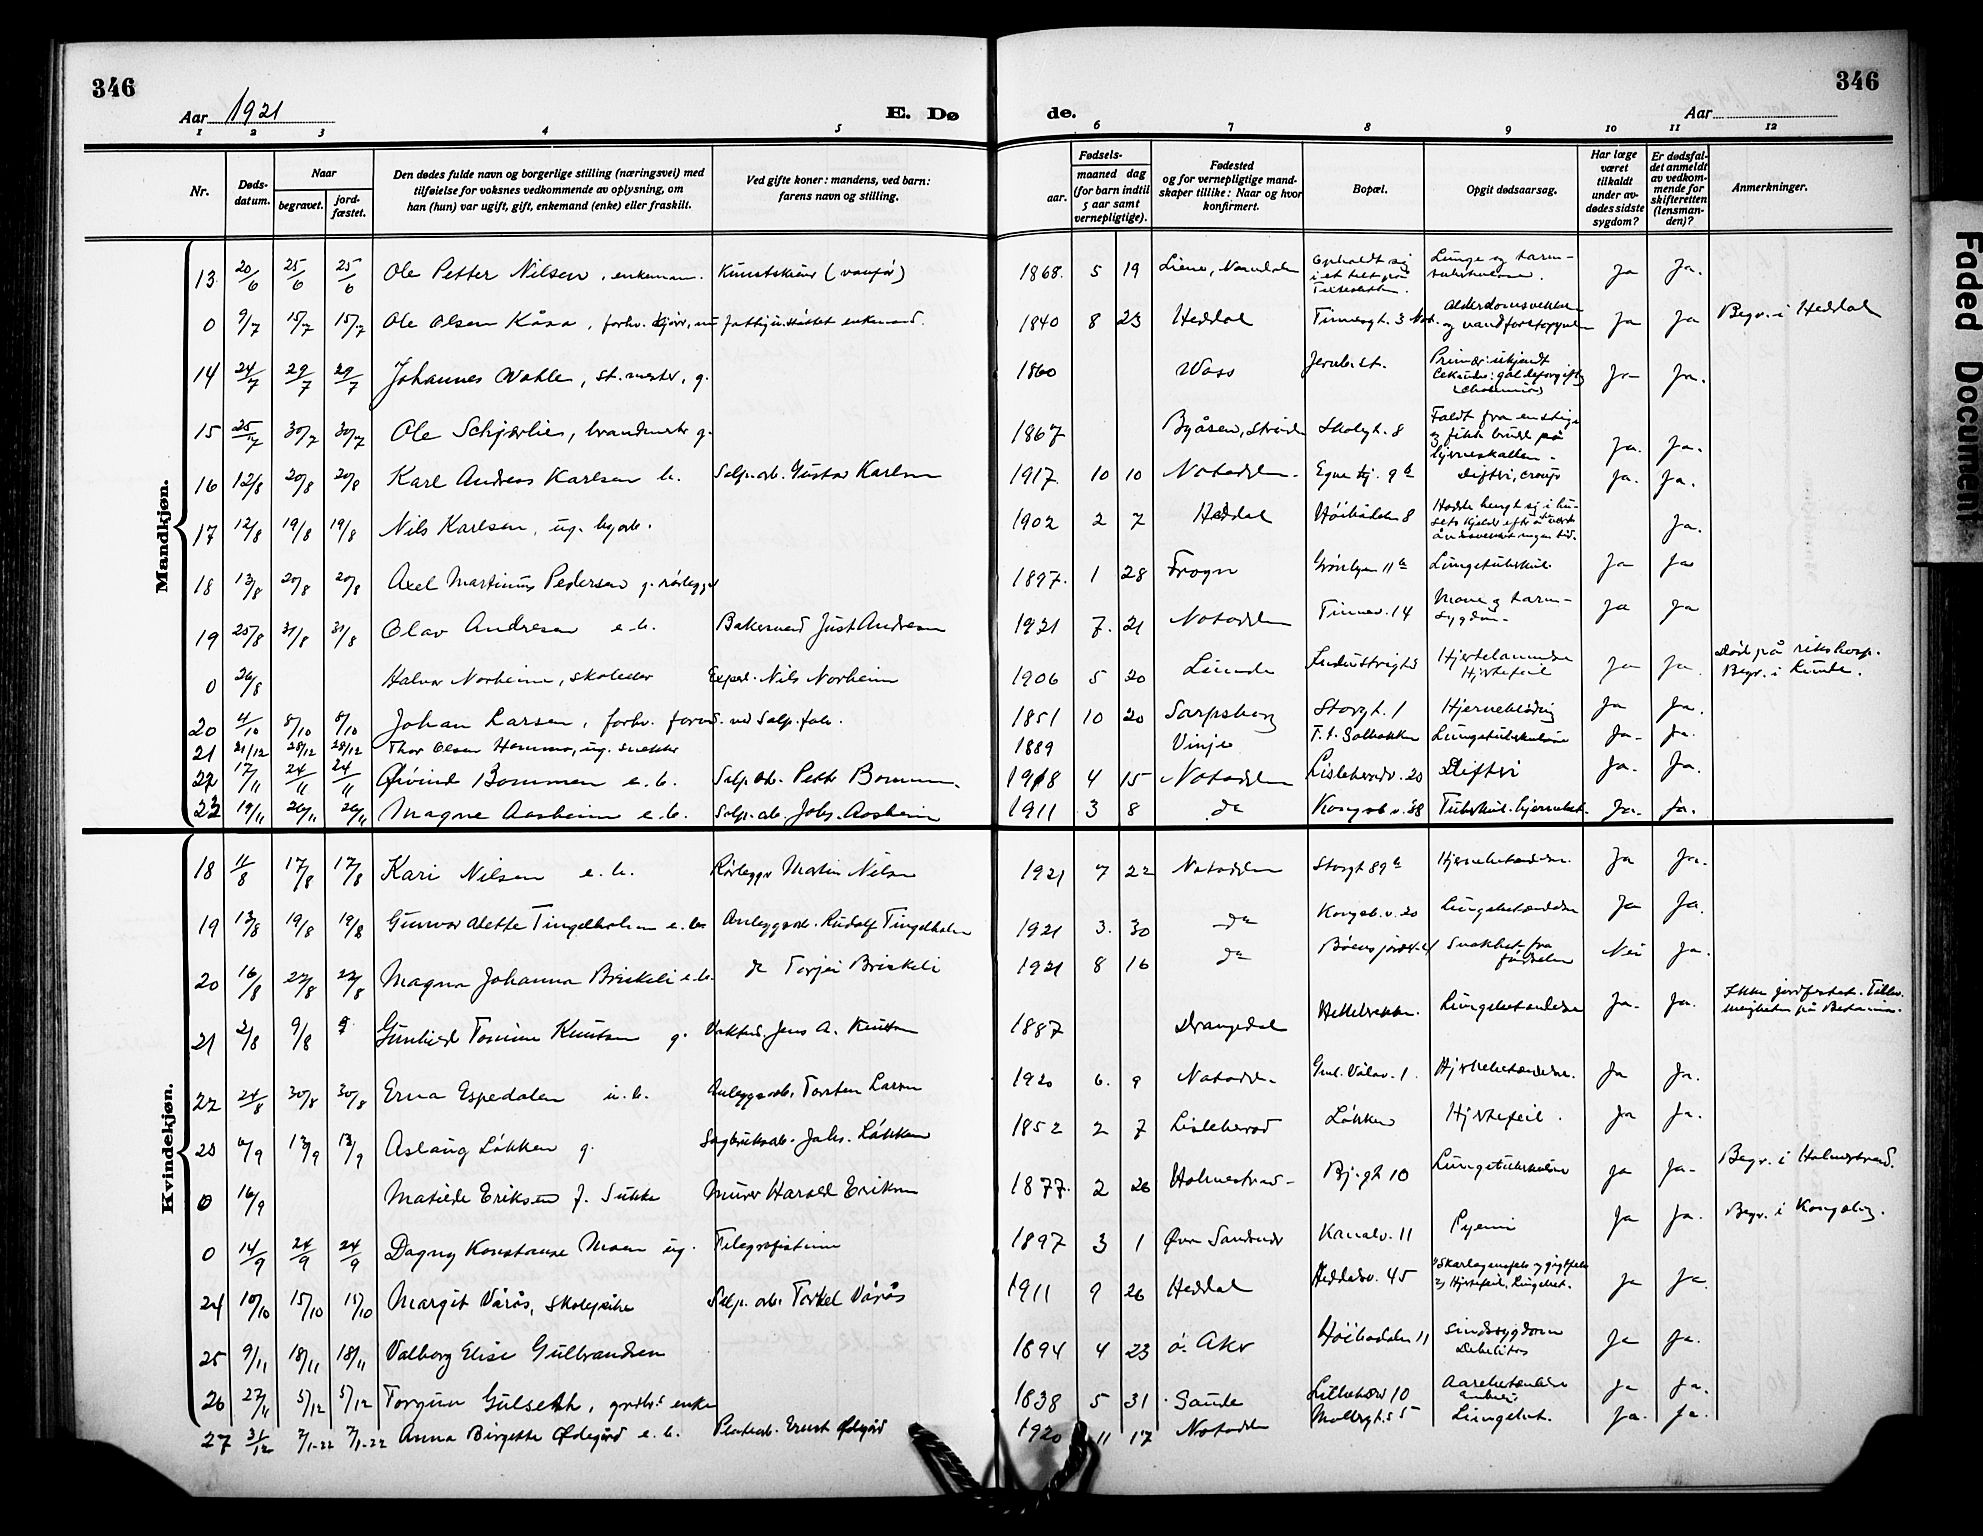 346
346
Aar 1921
E. Dø
de.
Aar
1 2 3 4 5 6 7 8 9 10 11 12
Nr.
Døds-
datum.
Naar
begravet.
jord-
fæstet.
Den dødes fulde navn og borgerlige stilling (næringsvei) med
tilføielse for voksnes vedkommende av oplysning, om
han (hun) var ugift, gift, enkemand (enke) eller fraskilt.
Ved gifte koner: mandens, ved barn:
farens navn og stilling.
Fødsels-
aar.
maaned dag
(for barn indtil
5 aar samt
vernepligtige).
Fødested
og for vernepligtige mand-
skaper tillike: Naar og hvor
konfirmert.
Bopæl.
Opgit dødsaarsag.
Har læge
været
tilkaldt
under av-
dødes sidste
sygdom?
Er dødsfal-
det anmeldt
av vedkom-
mende for
skifteretten
(lensman-
den)?
Anmerkninger.
Mandkjøn.
13 20/6 25/6 25/6 Ole Petter Nilsen, enkeman. 1868. 5 19 Lierne, Namdalen Opholdt sig i et telt på Lunge og tarm- Ja Ja.
0 9/7 15/7 15/7 Ole Olsen Kåsa, forhv. enkemand. 1840 8 23 Heddal Tinnesgt. 3 Not. og Ja Ja Begr. i Heddal
14 24/7 29/7 29/7 Johannes Vahle, st.mester, g. 1860 Voss Jernb.st. Ja Ja.
15 25/7 30/7 30/7 Ole Schjærlien, brandmester g. 1867 Byåsen, Strinden Skolegt. 8 Faldt fra en stige og fikk brudd på hjerneskallen. Ja. Ja.
16 12/8 20/8 20/8 Karl Andreas Karlsen Salp.arb. Gustav Karlsen 1917. 10 10 Notodden Egne hj. 9 Difteri, croup Ja. Ja.
17 12/8 19/8 19/8 Nils Karlsen, ug. 1902 2 7 Heddal Høibødalen 8 Hadde hengt sig i Ja.
18 13/8 20/8 20/8 Axel Martinius Pedersen g. rørlegger 1897. 1 28 Frogn Grønbyen 11 Lungetuberkul. Ja Ja
19 25/8 31/8 31/8 Olav Andresen e.b. Bakersvend Just Andresen 1921 7. 21 Notodden Tinnev. 14 Mave og tarm- sygdom Ja Ja
0 26/8 Halvor Norheim, skoleelev Exped. Nils Norheim 1906 5 20 Lunde Industrigt. Hjertelammelse Hjertefeil Ja Ja. Død på rikshosp. Begr. i Lunde.
20 4/10 8/10 8/10 Johan Larsen, forhv. formd. ved Salp.fab. 1851 10 20 Sarpsborg Storgt. 1 Hjerneblødning Ja Ja.
21 21/12 28/12 28/12 Thor Olsen Hommo, ug. snekker 1889 Vinje Lungetuberkulose Ja. Ja.
22 17/11 24/11 24/11 Øivind Bommen e.b. Salp.arb. Petter Bommen 1918 4 15 Notodden Lisleheradv. 20 Difteri Ja. Ja.
23 19/11 26/11 26/11 Magne Aasheim e.b. Salp.arb. Johs. Aasheim 1911 3 8 do Kongsb.v. 38 Tuberkul. hjernebet. Ja. Ja.
Kvindekjøn.
18 4/8 17/8 17/8 Kari Nilsen e.b. Rørlegger Martin Nilsen 1921 7 22 Notodden Storgt 89 Hjernebetændelse. Ja Ja.
19 13/8 19/8 19/8 Gunvor Alette Tingelholm e.b. Anleggsarb. Rudolf Tingelholm 1921 3. 30 do Kongsb.v. 20 Lungebetændelse Ja Ja.
20 16/8 22/8 22/8 Magna Johanna Briskeli e.b. do Torjei Briskeli 1921 8 16 do Svakhet fra fødselen Nei Ja.
21 2/8 9/8 9 Gunhild Tomine Knutsen g. Jens A. Knutsen 1887 Drangedal Lungebetændelse Ja. Ja. Ikke jordfestet.
22 24/8 30/8 30/8 Erna Espedalen u.b. Anleggsarb. Torsten Larsen 1920 6. 9 Notodden Hjernebetændelse. Ja Ja.
23 6/9 13/9 13/9 Aslaug Løkken g. Sagbruksarb. Johs. Løkken 1852 2 7 Lisleherad Løkken Hjertefeil. Ja Ja.
0 16/9 Matilde Eriksen f. Sukke Murer Harald Eriksen 1877. 2 26 Holmestrand Bj.gt 10 Lungetuberkulose Ja Ja. Begr. i Holmestrand.
0 14/9 24/9 24/9 Dagny Konstanse Moen ug. Telegrafistinne 1897 3 1 Øvre Sandsvær Kanalv. 11 Pyemi Ja Ja. Begr. i Kongsberg.
24 10/10 15/10 15/10 Margit Vårås, skolepike Salp. arb. Torkel Vårås 1911 9 26 Heddal Heddalsv. 45 1) Skarlagensfeber og gigtfeber 2) Hjertefeil, Lungebet. Ja Ja.
25 9/11 18/11 18/11 Valborg Elise Gulbrandsen 1894 4 23 ø. Aker Høibødalen 11 Sindssygdom Debilitas Ja Ja.
26 27/11 5/12 5/12 Torgun Gulseth, enke 1838 5 31 Saude Lilleherad 10 Aarebetændelse Ja Ja.
27 31/12 7/1-22 7/1-22 Anna Birgitte Ødegård e.b. Ernst Ødegård 1920 11 17 Notodden Møllergt. 55 Lungebet. Ja. Ja.
Faded Document